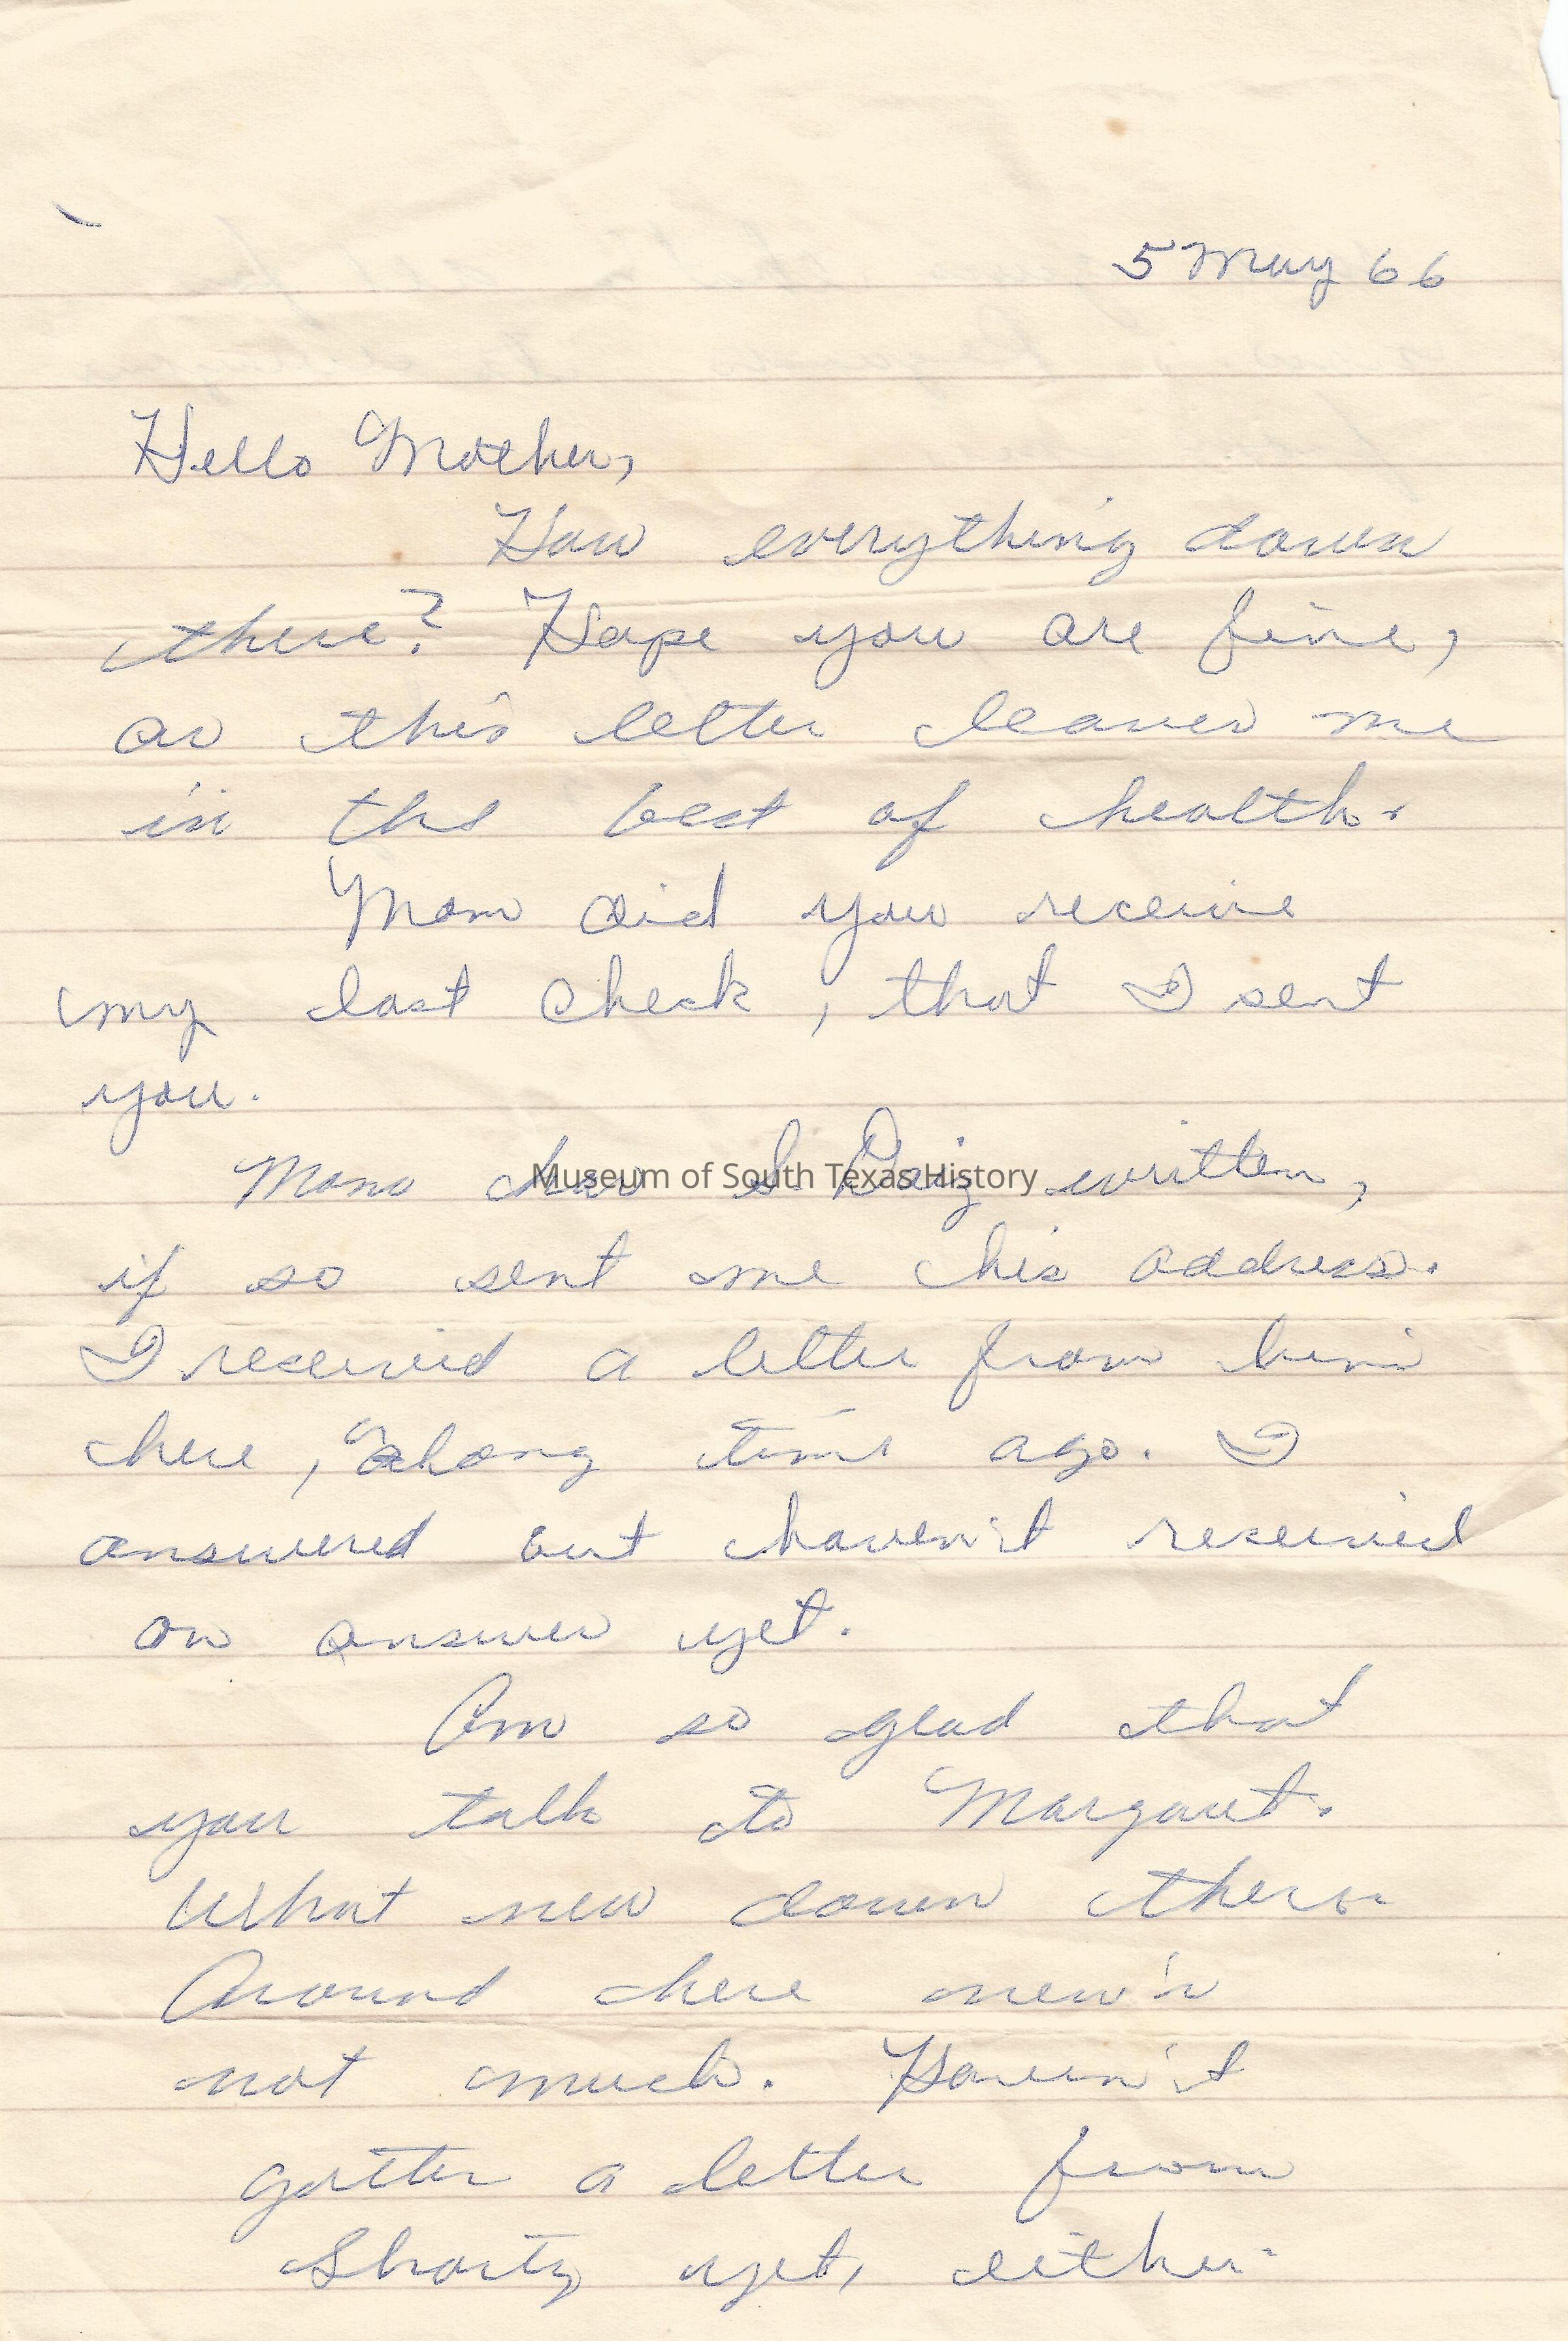 5 May 66
Hello Mother,
How everything down
there? Hope you are fine,
as this letter leaves me
in the best of health.
Mom did you receive
my last check, that I sent
you.
Mom has S. Ruiz written,
Museum of South Texas History
if so sent me his address.
I received a letter from him
here, a long time ago. I
answered but haven't received
an answer yet.
Am so glad that
you talk to Margaret.
What new down there.
Around here new's
not much. Haven't
gotten a letter from
Shorty yet, either.